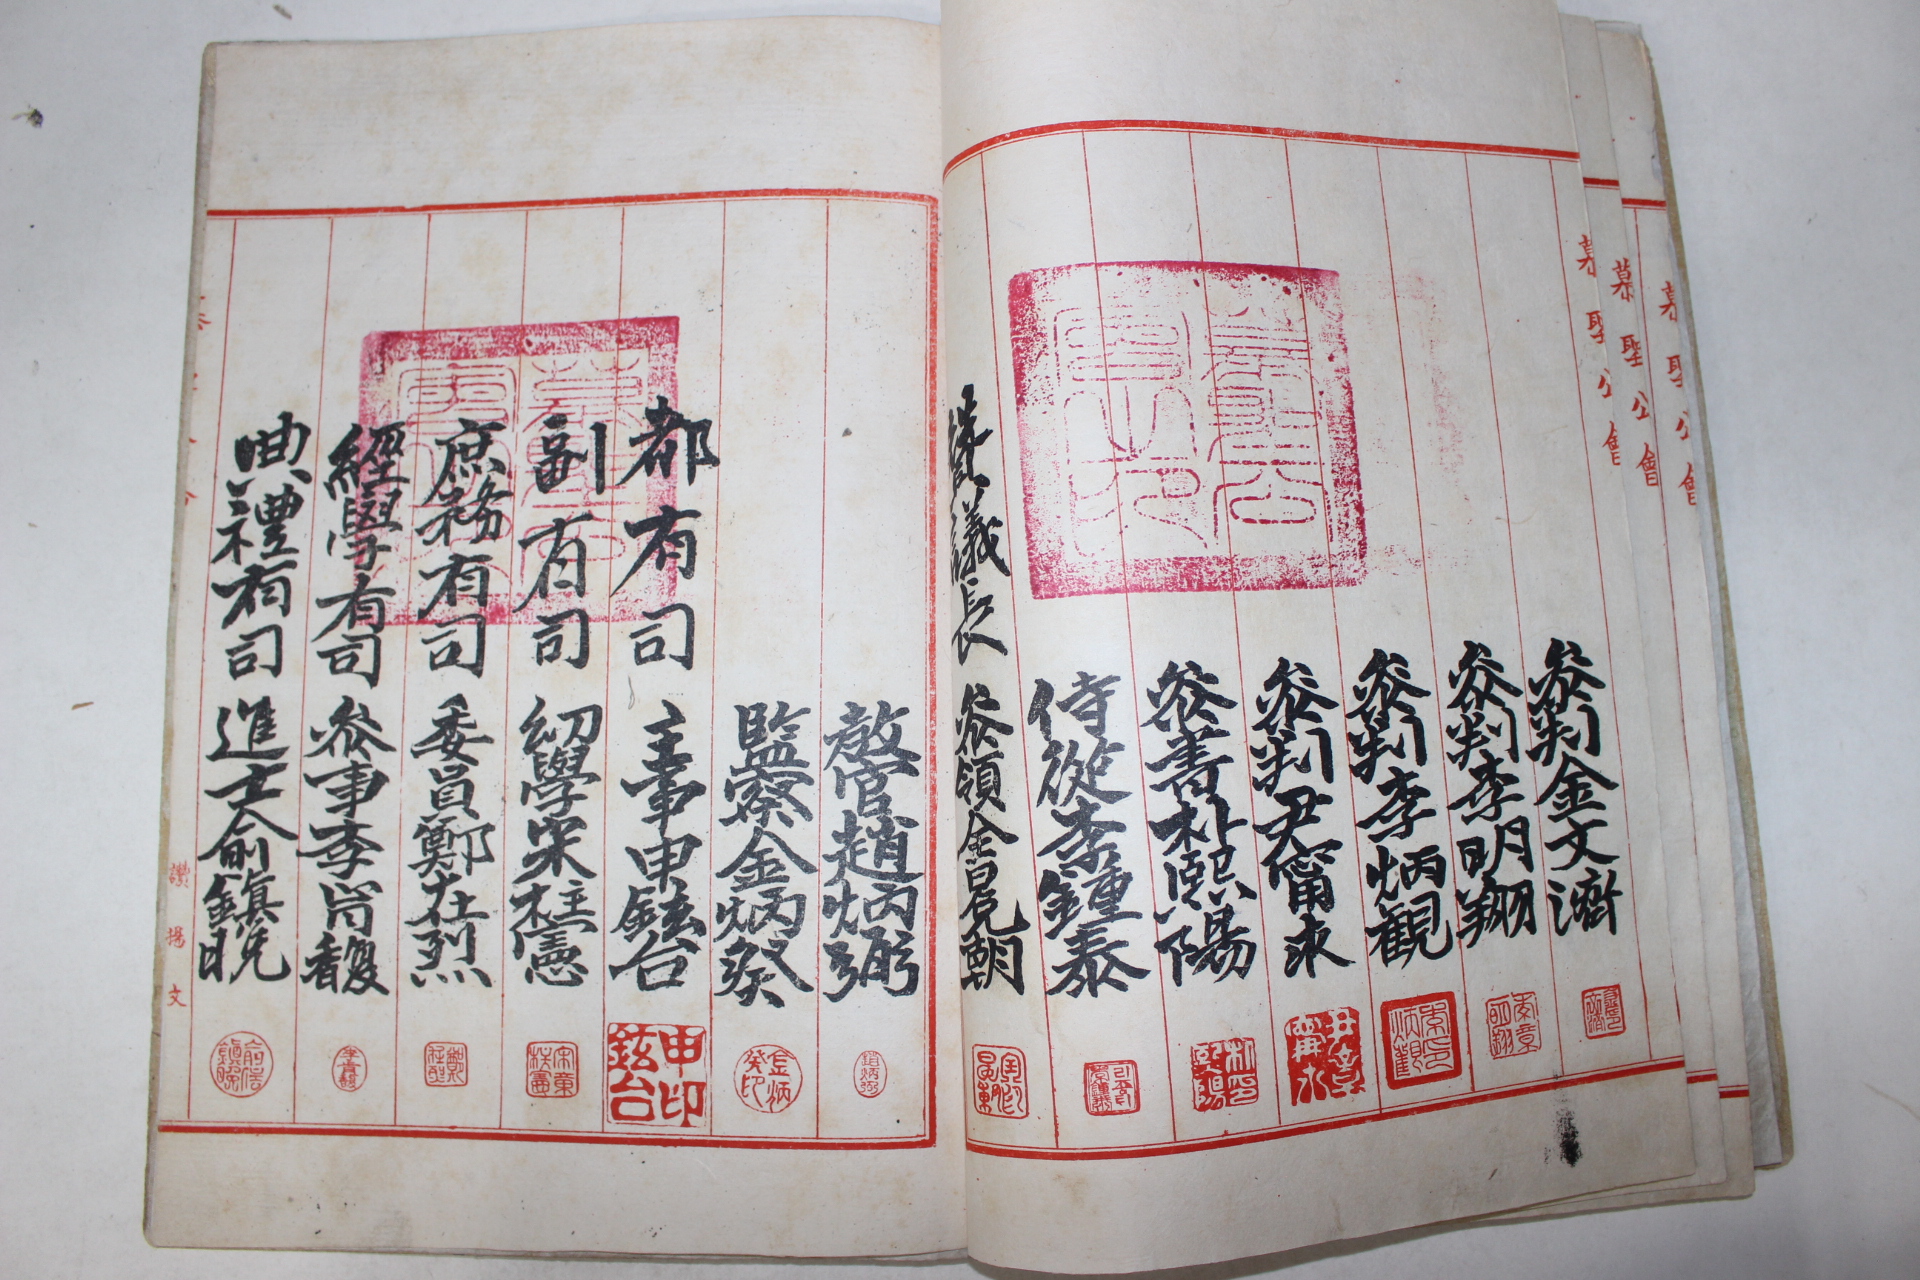 參判金文濟
參判李明翔
參判李炳觀
參判尹甯求
參書朴熙陽
侍從李鍾泰
議長 參領金昆朝
敎官趙炳弼
監察金炳癸
都有司 主事申鉉台
副有司 幼學宋柱憲
庶務有司 委員鄭在烈
經學有司 參事李尙馥
典禮有司 進士兪鎭晩
慕聖公會
慕聖公會
慕聖公會
讚揚文
申鉉台印